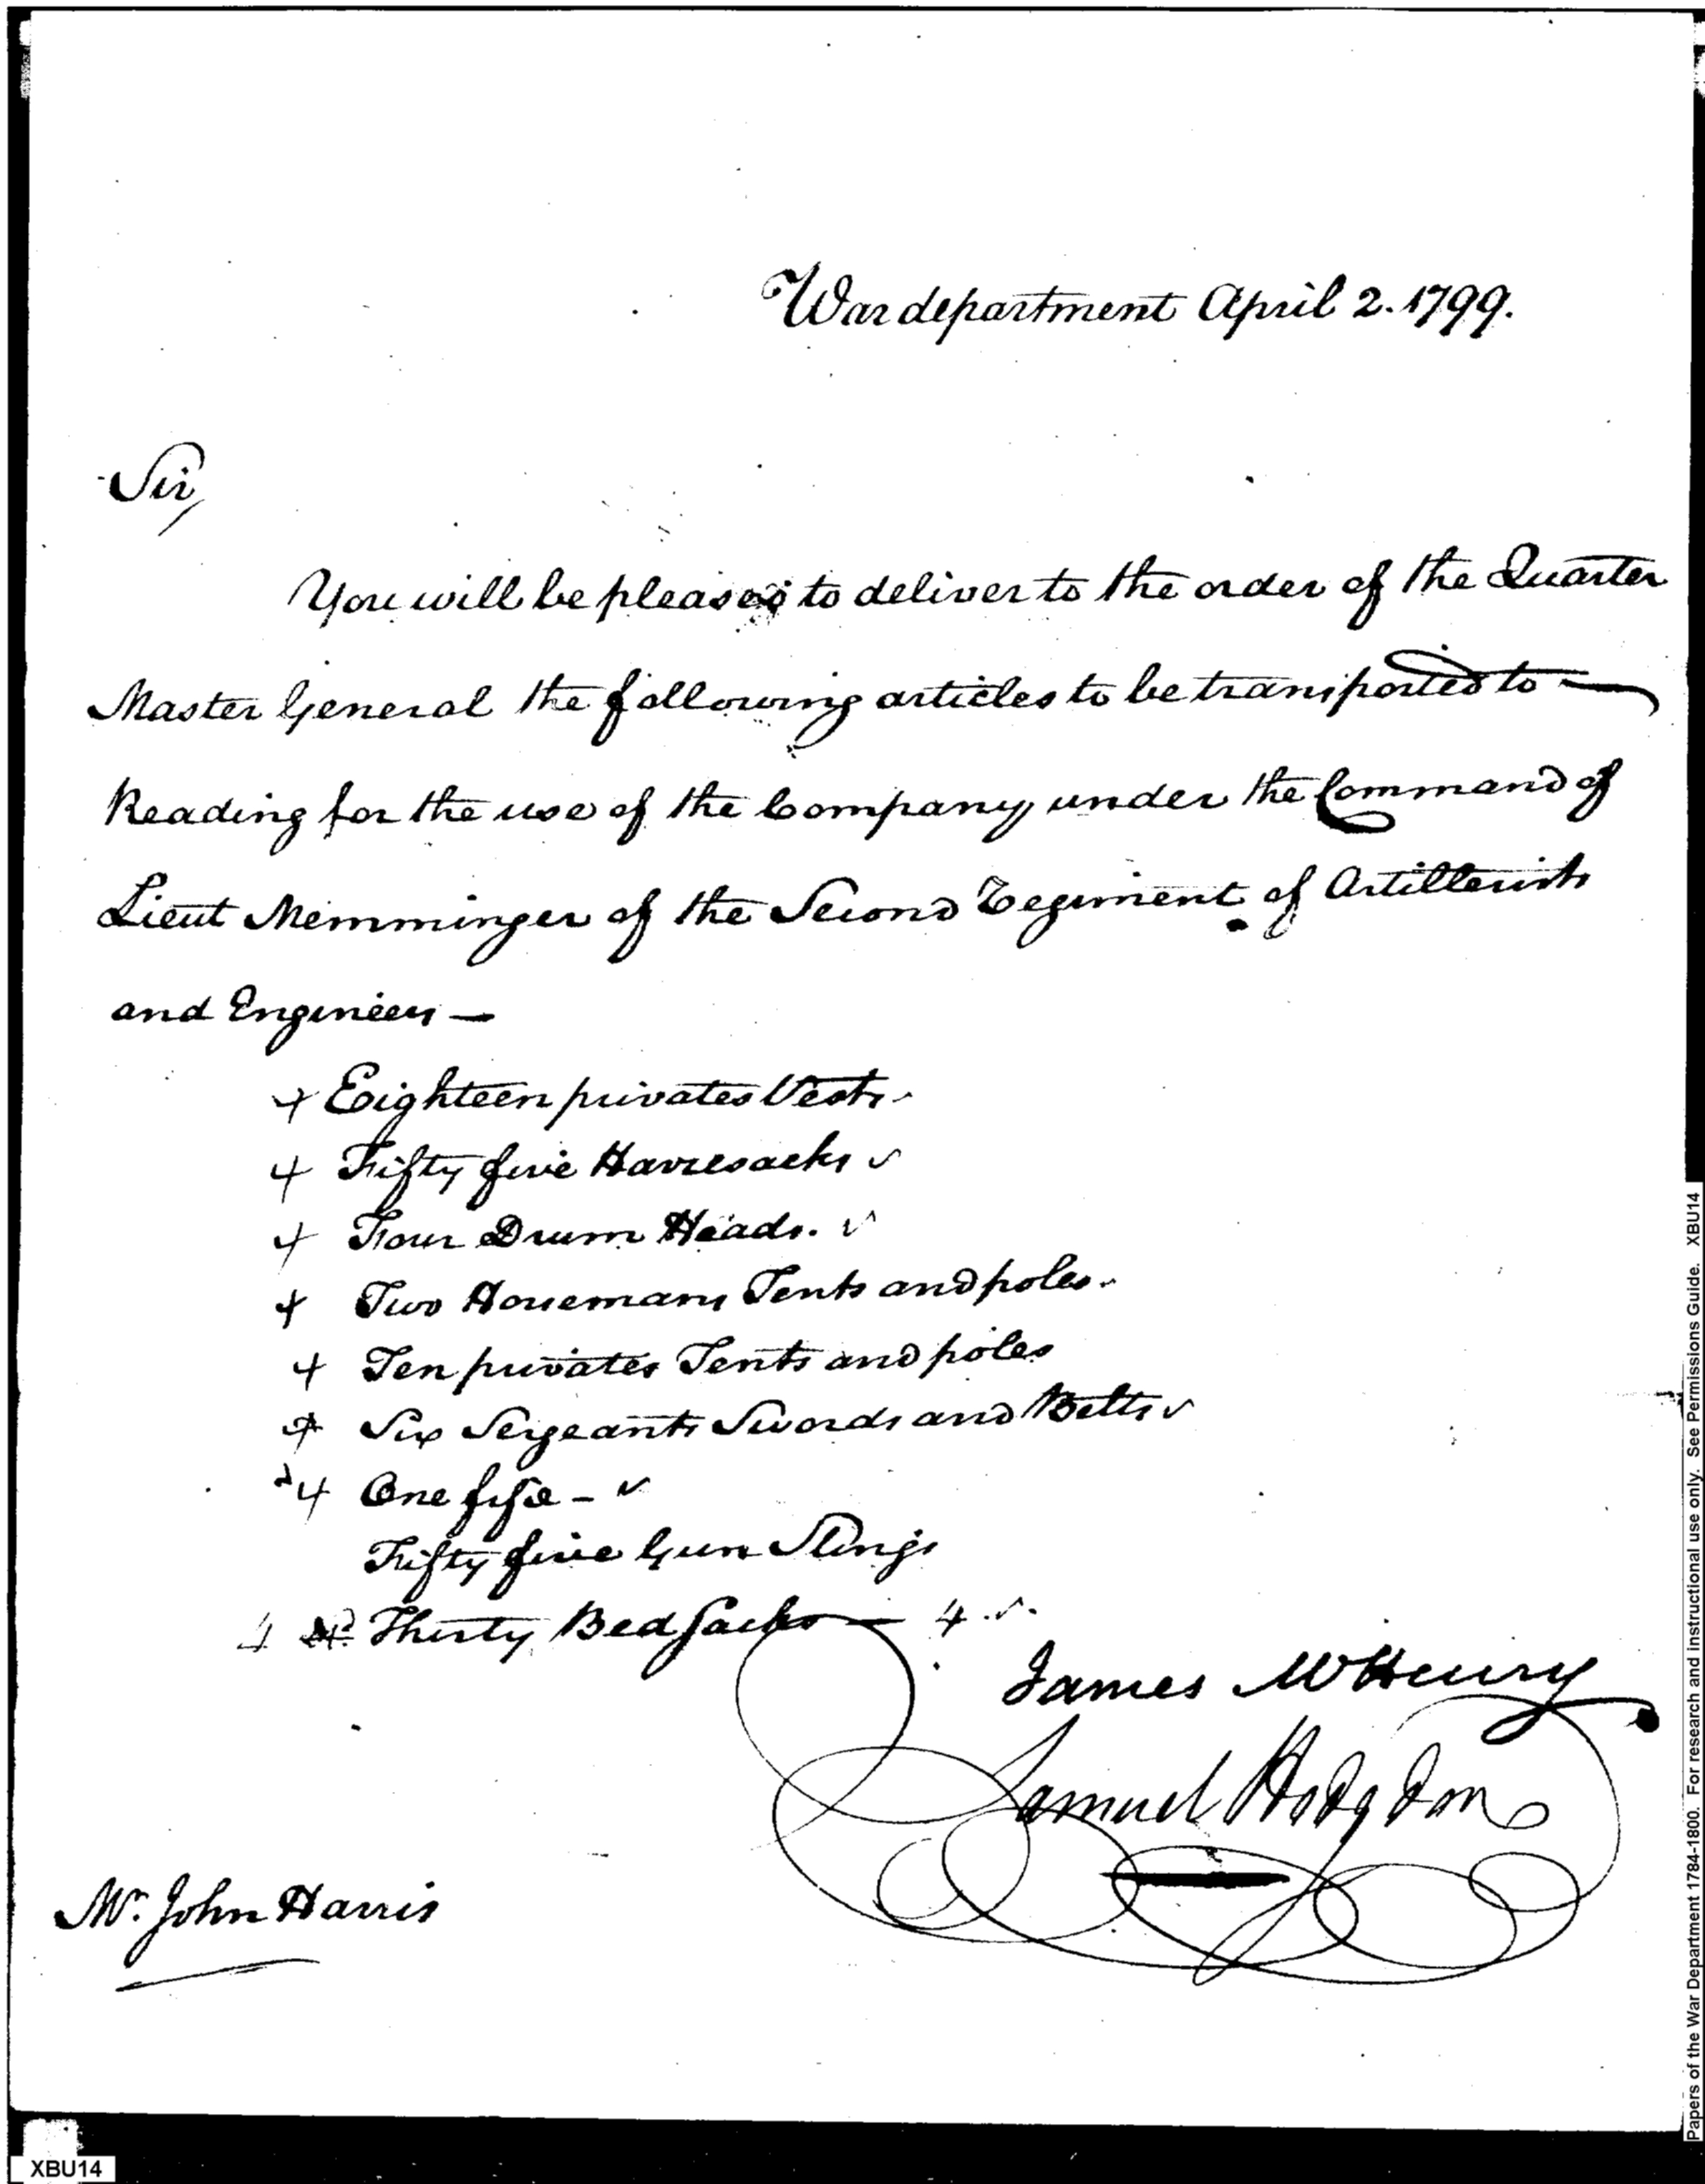 War department April 2. 1799.
Sir,
You will be pleased to deliver to the order of the Quarter
Master General the following articles to be transported to —
Reading for the use of the Company under the Command of
Lieut Memminger of the Second Regiment of Artillerists
and Engineers —
+ Eighteen privates Vests
+ Fifty five Haversacks ✓
+ Four Drum Heads. ✓
+ Two Horsemans Tents and poles
+ Ten privates Tents and poles
+ Six Sergeants Swords and Belts ✓
+ One fife - ✓
Fifty five Gun Slings
Thirty Bed Sacks — 4 ✓
James McHenry
Samuel Hodgdon
Mr. John Harris
Papers of the War Department 1784-1800. For research and instructional use only. See Permissions Guide. XBU14
XBU14